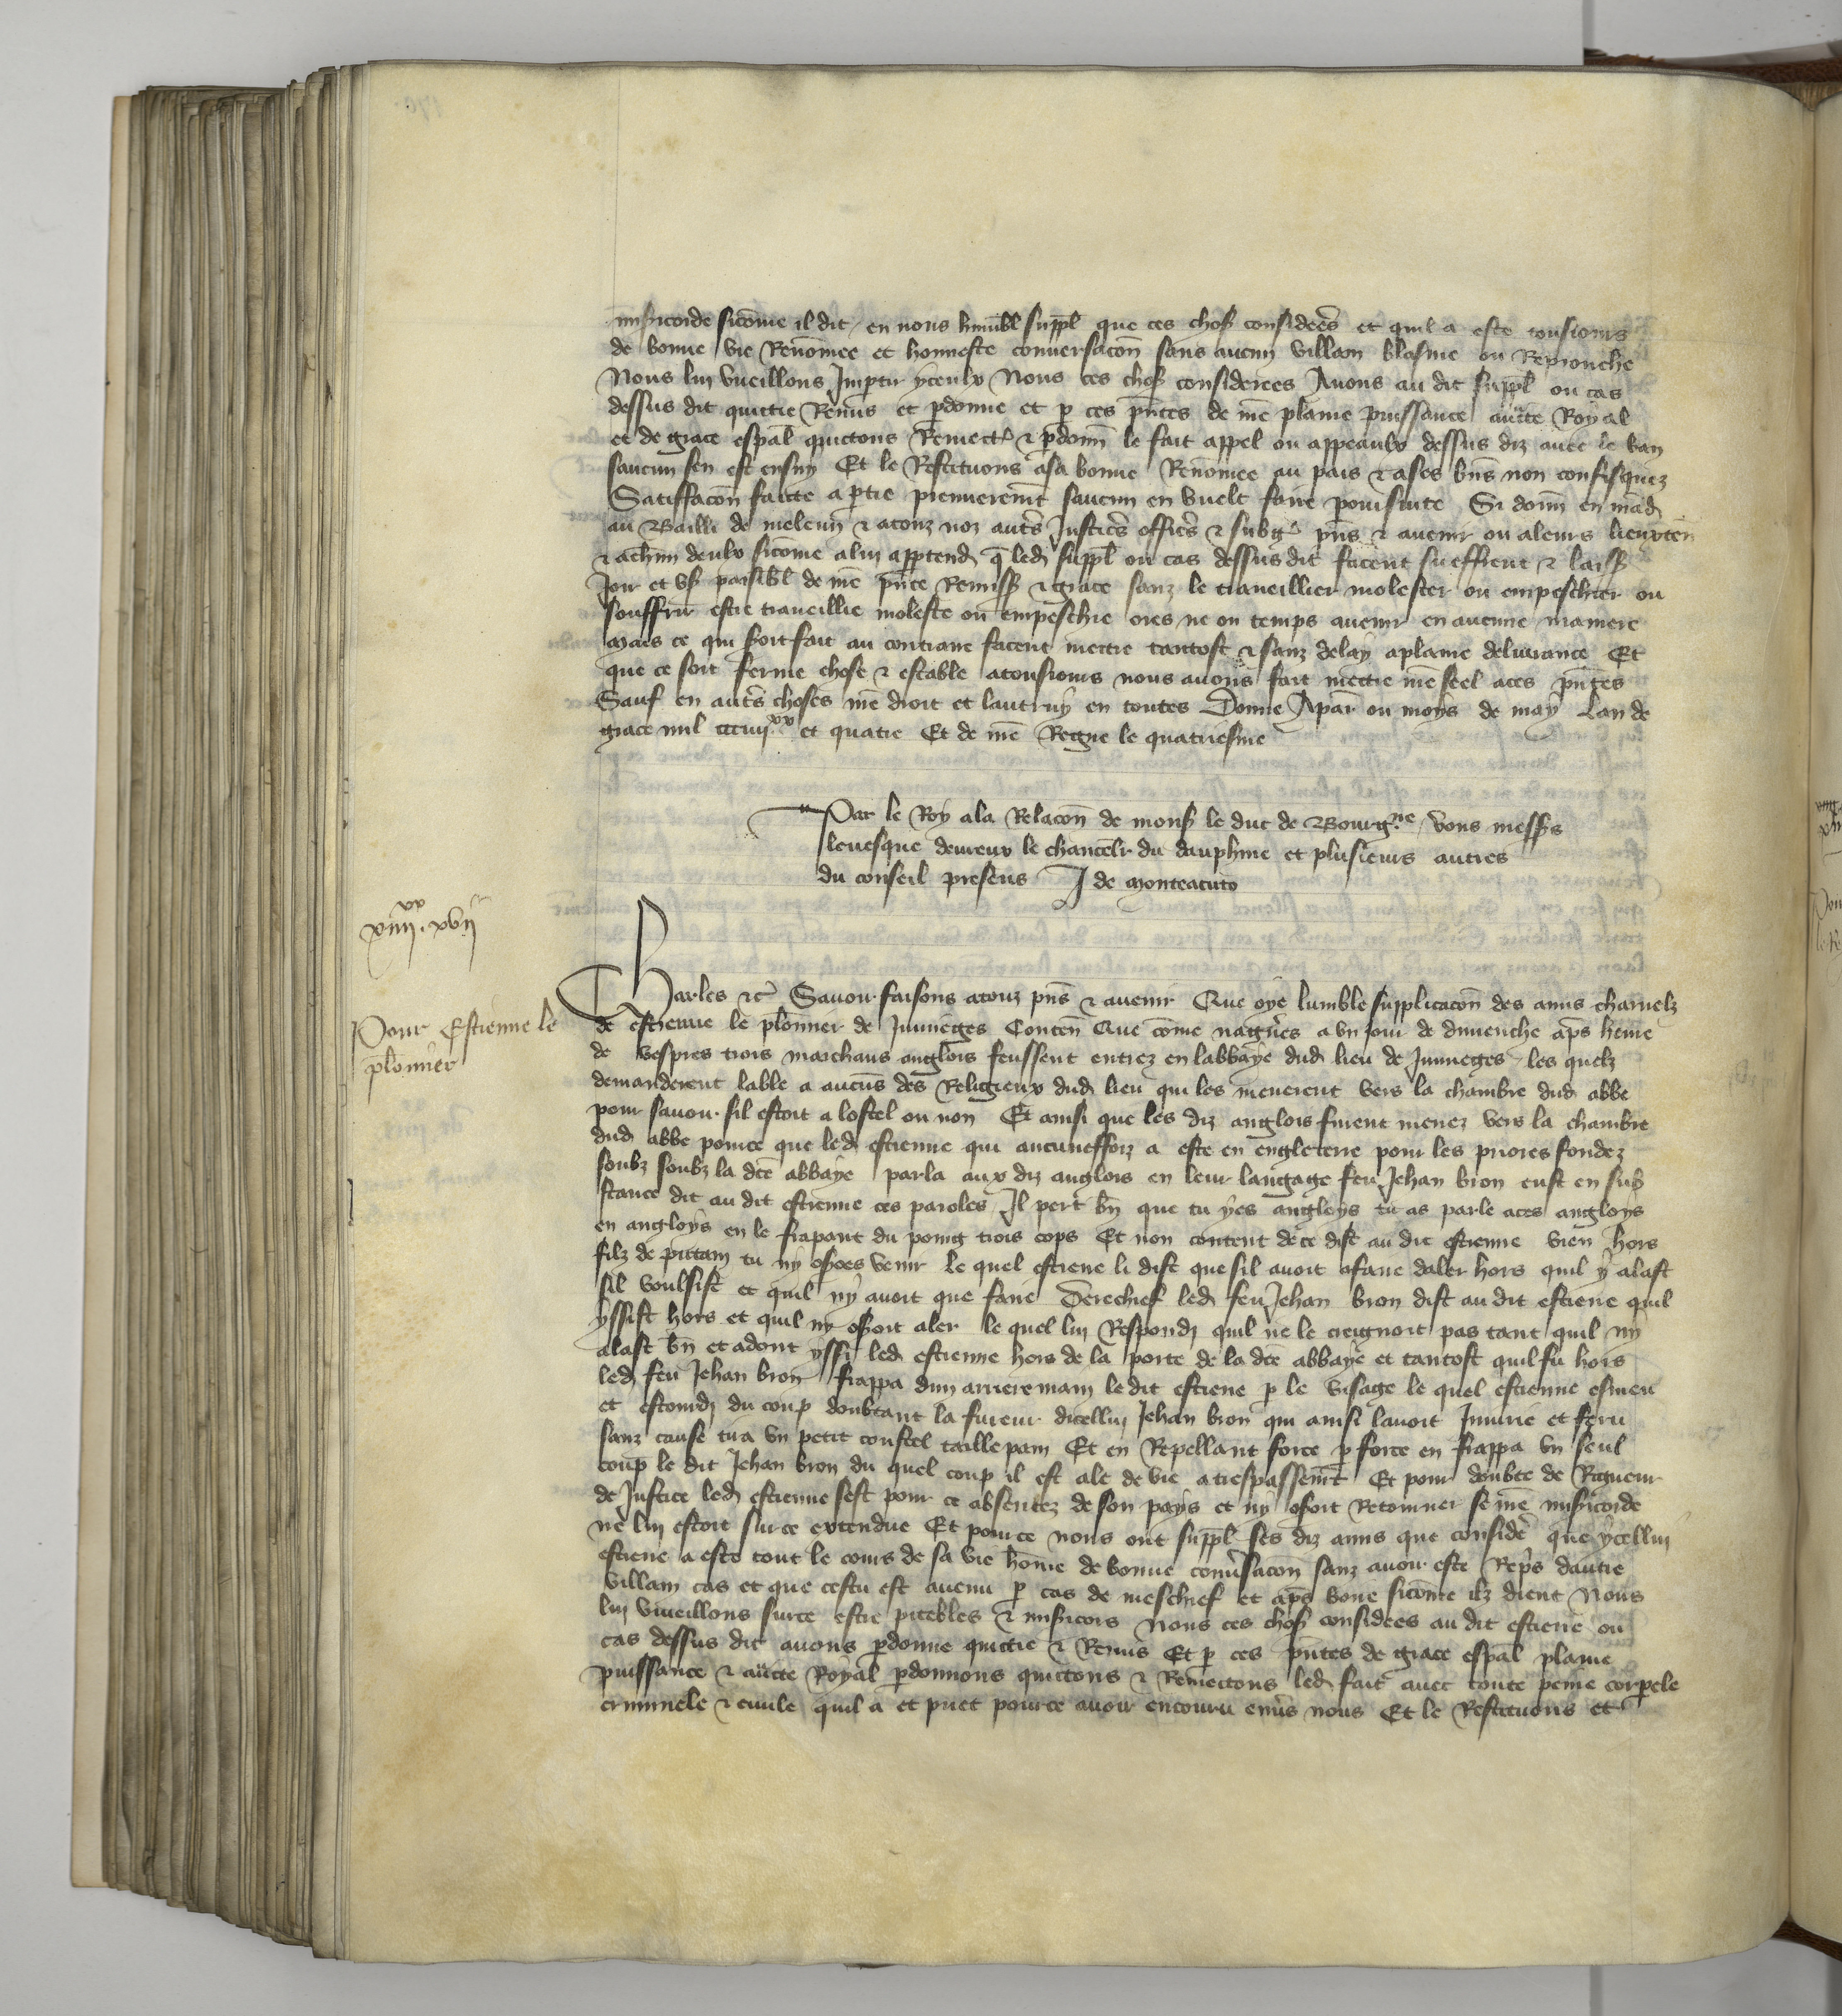 mis̃icorde sicõme il dit en nous humbl̃ suppl̃ que ces chos̃ considerẽes et quil a este tousiours
de bonne vie Renõmee et honneste conuersacõn sans aucun villain blasme ou Reprouche
Nous lui vueillons Impetr̃ yceulx Nous ces chos̃ considerees Auons au dit suppl̃ ou cas
dessus dit quittie Remis et p̃donne et p ces pñtes de ñre plaine puissance auc̃te Royal
et de grace esp̃al quictons Remect̃ & p̃donñ le fait appel ou appeaulx dessus diz auec le ban
saucun sen est ensuy Et le Restituons a sa bonne Renõmee au pais & a ses biñs non confisquez
Satiffacõn faicte a p̃tie premierem̃t saucun en vuelt faire poursuite Si donñ en mãd
au Bailli de meleun & a touz noz autr̃s Justicr̃s officr̃s & subg̃ pñs & auenir ou a leurs lieuxteñ
& a chũn deulx sicõme a lui app̃tend̃ q̃ led̃ suppl̃ ou cas dessus dit facent sueffrent & laiss̃
Joir et us̃ paisibl̃ de ñre pñte Remiss̃ & grace sanz le trauillier molester ou empeschier ou
souffrir estre traueillie moleste ou empeschie ores ne ou temps auenir en aucune maniere
Mais ce qui soit fait au contraire facent mectre tantost & sanz delay a plaine deliurance Et
que ce soit ferme chose & estable a tousiours nous auons fait mectre ñre seel a ces pñtes
Sauf en autr̃s choses ñre droit et lautruy en toutes Donne A par̃ ou moys de may Lan de
grace mil ccciiij xx et quatre Et de ñre Regne le quatriesme
Par le Roy a la Relacõn de mons̃ le duc de Bourgne vous mess̃rs
leuesque deureux le chancelr̃ du dauphine et plusieurs autres
du conseil presens J de Monteacuto
xiiij xx xvij
Pour Estienne le
plõmier
Charles &c̃ Sauoir faisons a touz pñs & auenir Que oye lumble supplicacõn des amis charnelz
de estienne le plõmier de Jumieges Conteñ Que cõme nagũres a un jour de dimenche ap̃s heure
de vespres trois marchans anglois feussent entrez en labbaye dud̃ lieu de Jumieges les quelz
demanderent labbe a aucũs des Religieux dud̃ lieu qui les menerent vers la chambre dud̃ abbe
pour sauoir sil estoit a lostel ou non Et ainsi que les diz anglois furent menez vers la chambre
dud̃ abbe pource que led̃ estienne qui aucuneffoiz a este en engleterre pour les priores fondez
soubz soubz la dc̃te abbaye parla aux diz anglois en leur langage feu Jehan bron eust en sub
stance dit au dit estienne ces paroles Il pert bñ que tu yes angloys tu as parle a ces angloys
en angloys en le frapant du poing trois cops Et non content de ce dist au dit estienne vien hors
filz de puttain tu ny oseras venir le quel estiene li dist que sil auoit afaire daler hors quil y alast
sil voulsist et quil ny auoit que faire Derechief led̃ feu Jehan bron dist au dit estiene quil
yssist hors et quil ny osoit aler le quel lui Respond̃ quil ne le creignoit pas tant quil ny
alast bñ et adont yssi led̃ estienne hors de la porte de la dc̃te abbaye et tantost quil fu hors
led̃ feu Jehan bron frappa dun arriere main le dit estiene p le visage le quel estienne esmeu
et estourdi du coup doubtant la fureur dicellui Jehan bron qui ainsi lauoit Iniurie et feru
sanz cause tira un petit coustel taille pain Et en Repellant force p force en frappa un seul
coup le dit Jehan bron du quel coup il est ale de vie a trespassem̃t Et pour doubte de Rigueur
de Justice led̃ estienne sest pour ce absentez de son pays et ny osoit Retourner se ñre mis̃icorde
ne lui estoit sur ce extendue Et pource nous ont suppl̃ ses diz amis que considẽ que ycellui
estiene a este tout le cours de sa vie hõme de bonne conũsacõn sanz auoir este Rep̃s dautre
villain cas et que cestui est auenu p cas de meschief et ap̃s boire sicõme ilz dient Nous
lui vueillons sur ce estre piteables & mis̃icors Nous ces chos̃ considees au dit estiene ou
cas dessus dit auons p̃donne quictie & Remis Et p ces pñtes de grace esp̃al plaine
puissance & auc̃te Royal p̃donnons quictons & Remectons led̃ fait auec toute peine corp̃ele
criminele & ciuile quil a et puet pource auoir encouru enũs nous Et le Restituons et